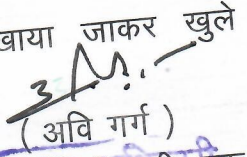 खाया जाकर खुले
( अवि गर्ग )